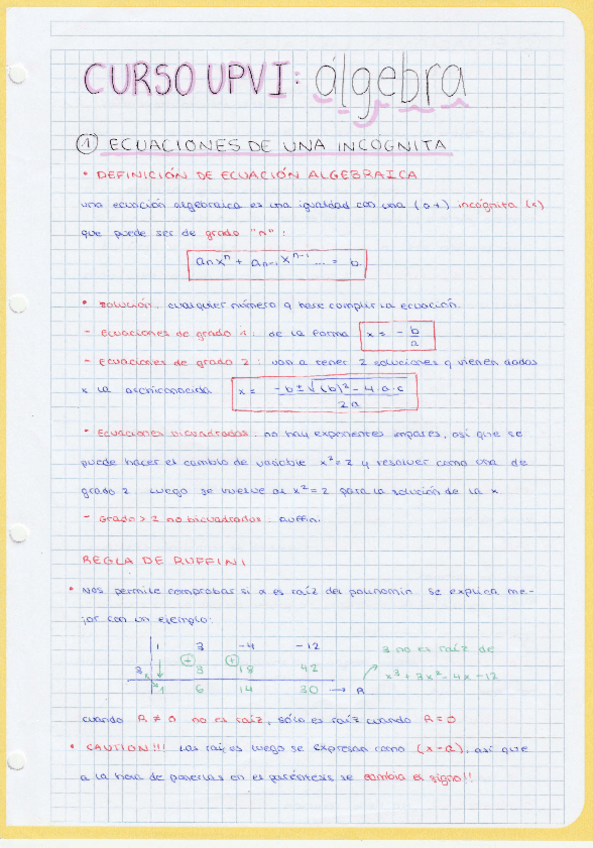 CURSO UPVI: álgebra
① ECUACIONES DE UNA INCÓGNITA
• DEFINICIÓN DE ECUACIÓN ALGEBRAICA
una ecuación algebraica es una igualdad con una (o +) incógnita (x)
que puede ser de grado "n":
aₙxⁿ + aₙ₋₁xⁿ⁻¹ ... = b
• Solución: cualquier número q hace cumplir la ecuación.
- Ecuaciones de grado 1: de la forma x = - b/a
- Ecuaciones de grado 2: van a tener 2 soluciones q vienen dadas
x la archiconocida x = -b ± √(b)² - 4·a·c / 2a
• Ecuaciones bicuadradas: no hay exponentes impares, así que se
puede hacer el cambio de variable x² = z y resolver como una de
grado 2. Luego se vuelve al x² = z para la solución de la x
- Grado > 2 no bicuadradas: Ruffini.
REGLA DE RUFFINI
• Nos permite comprobar si a es raíz del polinomio. Se explica me-
jor con un ejemplo:
1 3 -4 -12
3 3 18 42
1 6 14 30 → R
3 no es raíz de
x³ + 3x² - 4x - 12
cuando R ≠ 0 no es raíz, sólo es raíz cuando R = 0
• CAUTION!!! Las raíces luego se expresan como (x-a), así que
a la hora de ponerlas en el paréntesis se cambia el signo!!